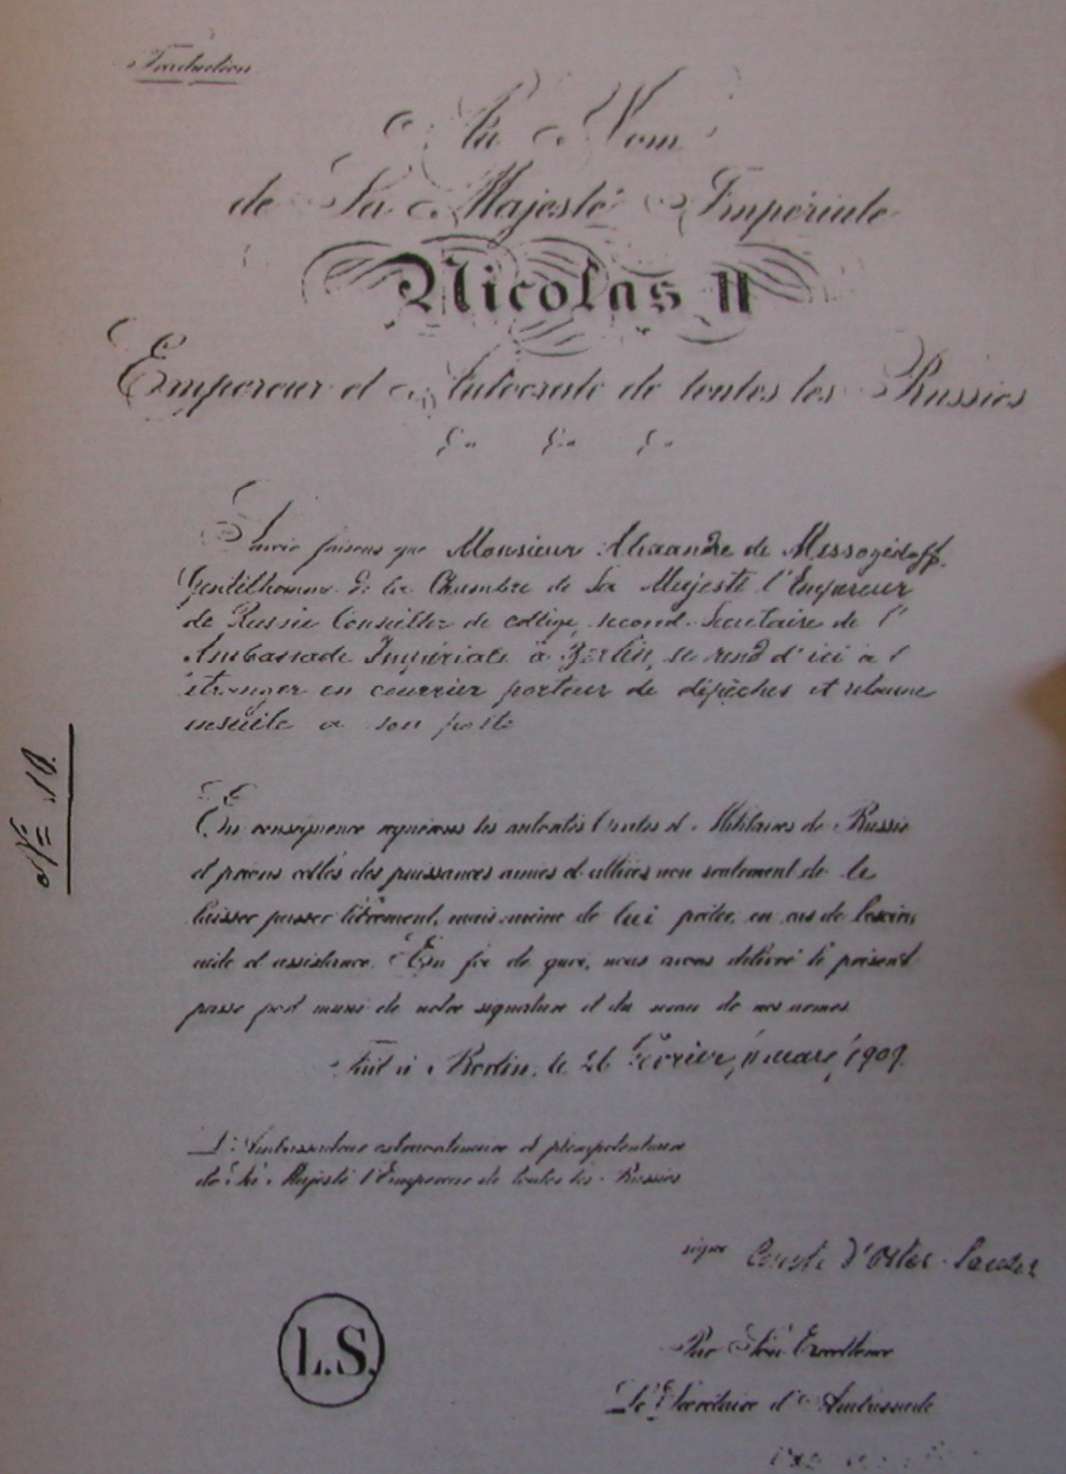 Traduction
Au Nom
de Sa Majesté Impériale
Nicolas II
Empereur et Autocrate de toutes les Russies
&a &a &a
Savoir faisons que Monsieur Alexandre de Messoyédoff
Gentilhomme de la Chambre de Sa Majesté l'Empereur
de Russie Conseiller de collège, second Secrétaire de l'
Ambassade Impériale à Berlin, se rend d'ici à l'
étranger en courrier porteur de dépêches et retourne
ensuite à son poste
N° 10.
En conséquence requérons les autorités Civiles et Militaires de Russie
et prions celles des puissances amies et alliées non seulement de le
laisser passer librement, mais même de lui prêter, en cas de besoin,
aide et assistance. En foi de quoi, nous avons délivré le présent
passe port muni de notre signature et du sceau de nos armes.
Fait à Berlin, le 26 Février, 11 mars, 1909.
L'Ambassadeur extraordinaire et plénipotentiaire
de Sa Majesté l'Empereur de toutes les Russies
signé Comte d'Osten-Sacken
L.S.
Par Son Excellence
Le Secrétaire d'Ambassade